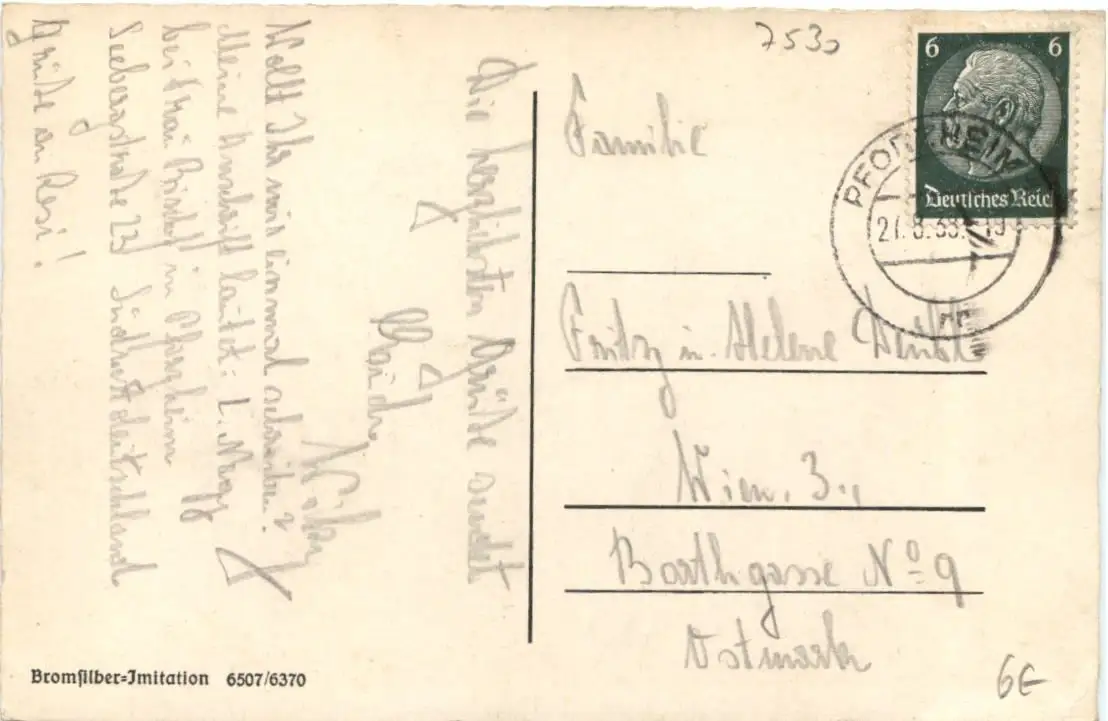 7530
6 6
Deutſches Reich
PFORZHEIM
27.8.38. 19
Familie
Fritz u. Helene
Wien, 3.,
Barthgasse Nº 9
Ostmark
Die herzlichsten Grüße sendet
Wollt Ihr mir einmal schreiben?
Meine Anschrift lautet: L.
bei Frau in Pforzheim
Seebergstraße 23 Südwestdeutschland
Grüße an Resi!
Bromſilber=Imitation 6507/6370
6€